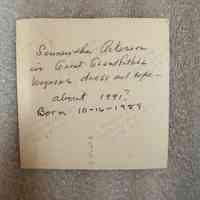 Samantha Acterson
in Great Grandfather
Wegners dress and cape -
about 1991?
Born 10-16-1989